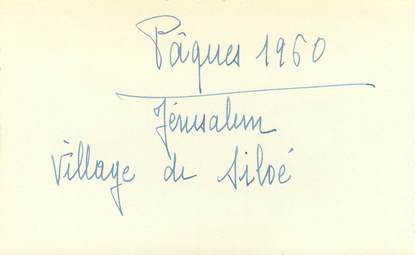 Pâques 1960
Jérusalem
Village de Siloé